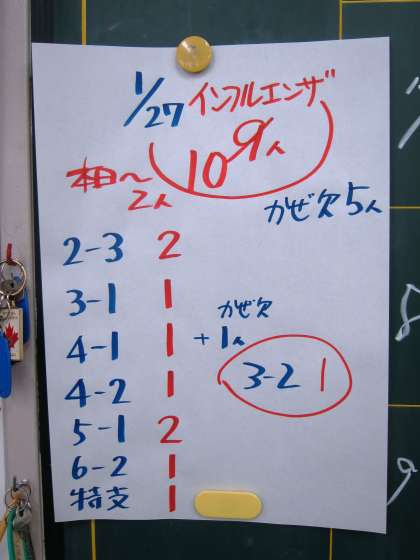 1/27 インフルエンザ
10 9人
本日〜
2人
かぜ欠5人
2-3 2
3-1 1
4-1 1
かぜ欠
+1人
4-2 1
3-2 1
5-1 2
6-2 1
特支 1
8